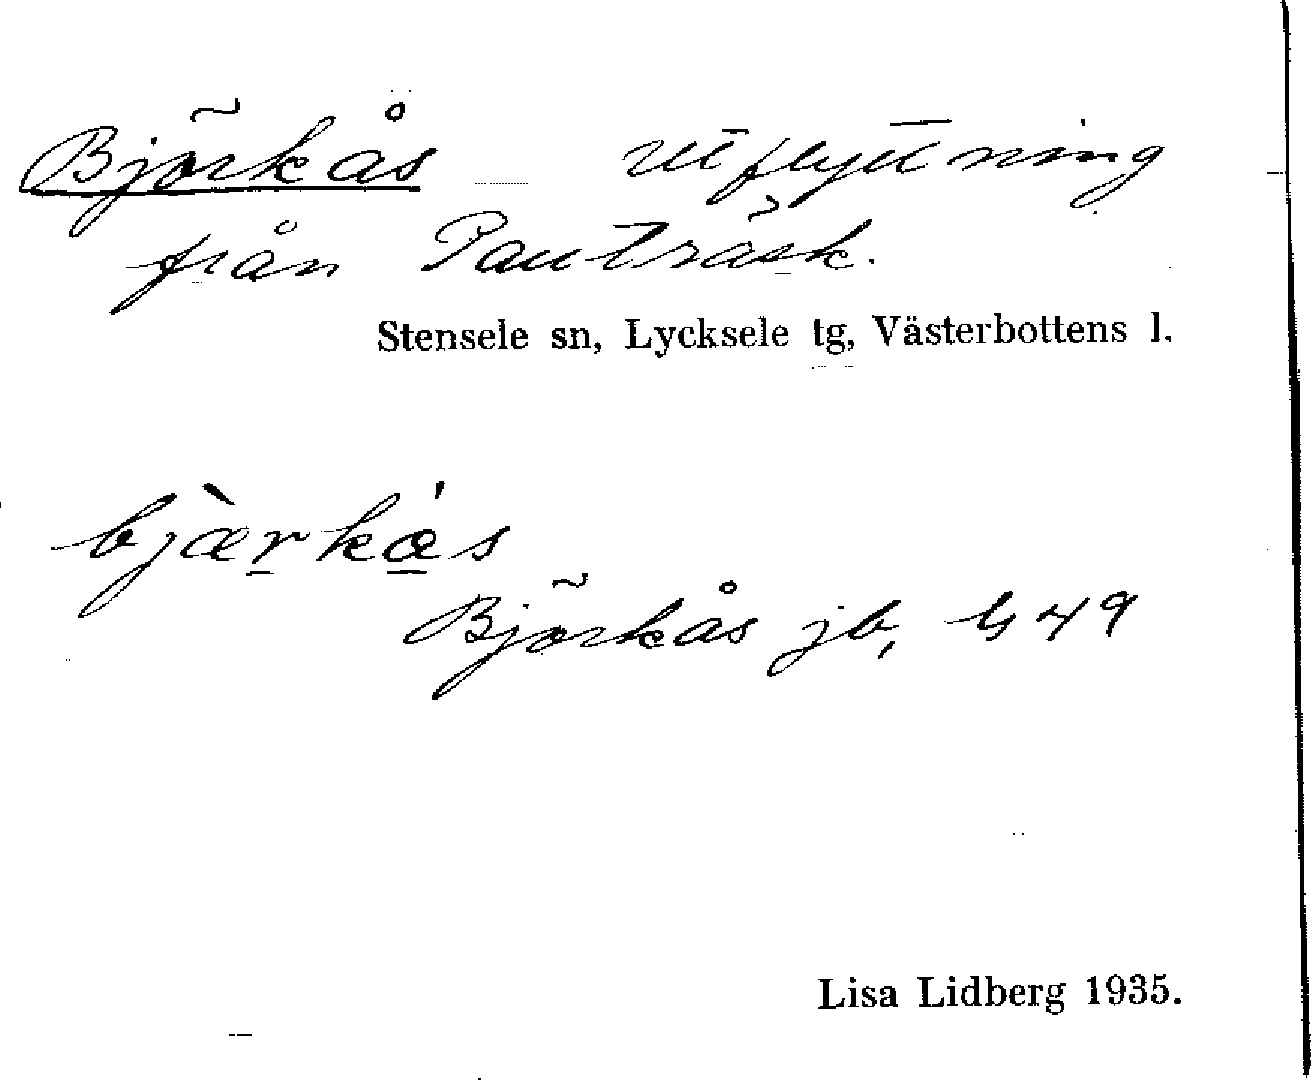 Björkås utflyttning
från Pauträsk.
Stensele sn, Lycksele tg, Västerbottens l.
bjæ̀rkás
Björkås jb, G 49
Lisa Lidberg 1935.